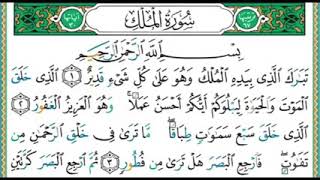 سُورَةُ الْمُلْكِ
بِسْمِ اللَّهِ الرَّحْمَٰنِ الرَّحِيمِ
تَبَارَكَ الَّذِي بِيَدِهِ الْمُلْكُ وَهُوَ عَلَىٰ كُلِّ شَيْءٍ قَدِيرٌ ١ الَّذِي خَلَقَ
الْمَوْتَ وَالْحَيَاةَ لِيَبْلُوَكُمْ أَيُّكُمْ أَحْسَنُ عَمَلًا ۚ وَهُوَ الْعَزِيزُ الْغَفُورُ ٢
الَّذِي خَلَقَ سَبْعَ سَمَٰوَٰتٍ طِبَاقًا ۖ مَّا تَرَىٰ فِي خَلْقِ الرَّحْمَٰنِ مِن
تَفَٰوُتٍ ۖ فَارْجِعِ الْبَصَرَ هَلْ تَرَىٰ مِن فُطُورٍ ٣ ثُمَّ ارْجِعِ الْبَصَرَ كَرَّتَيْنِ